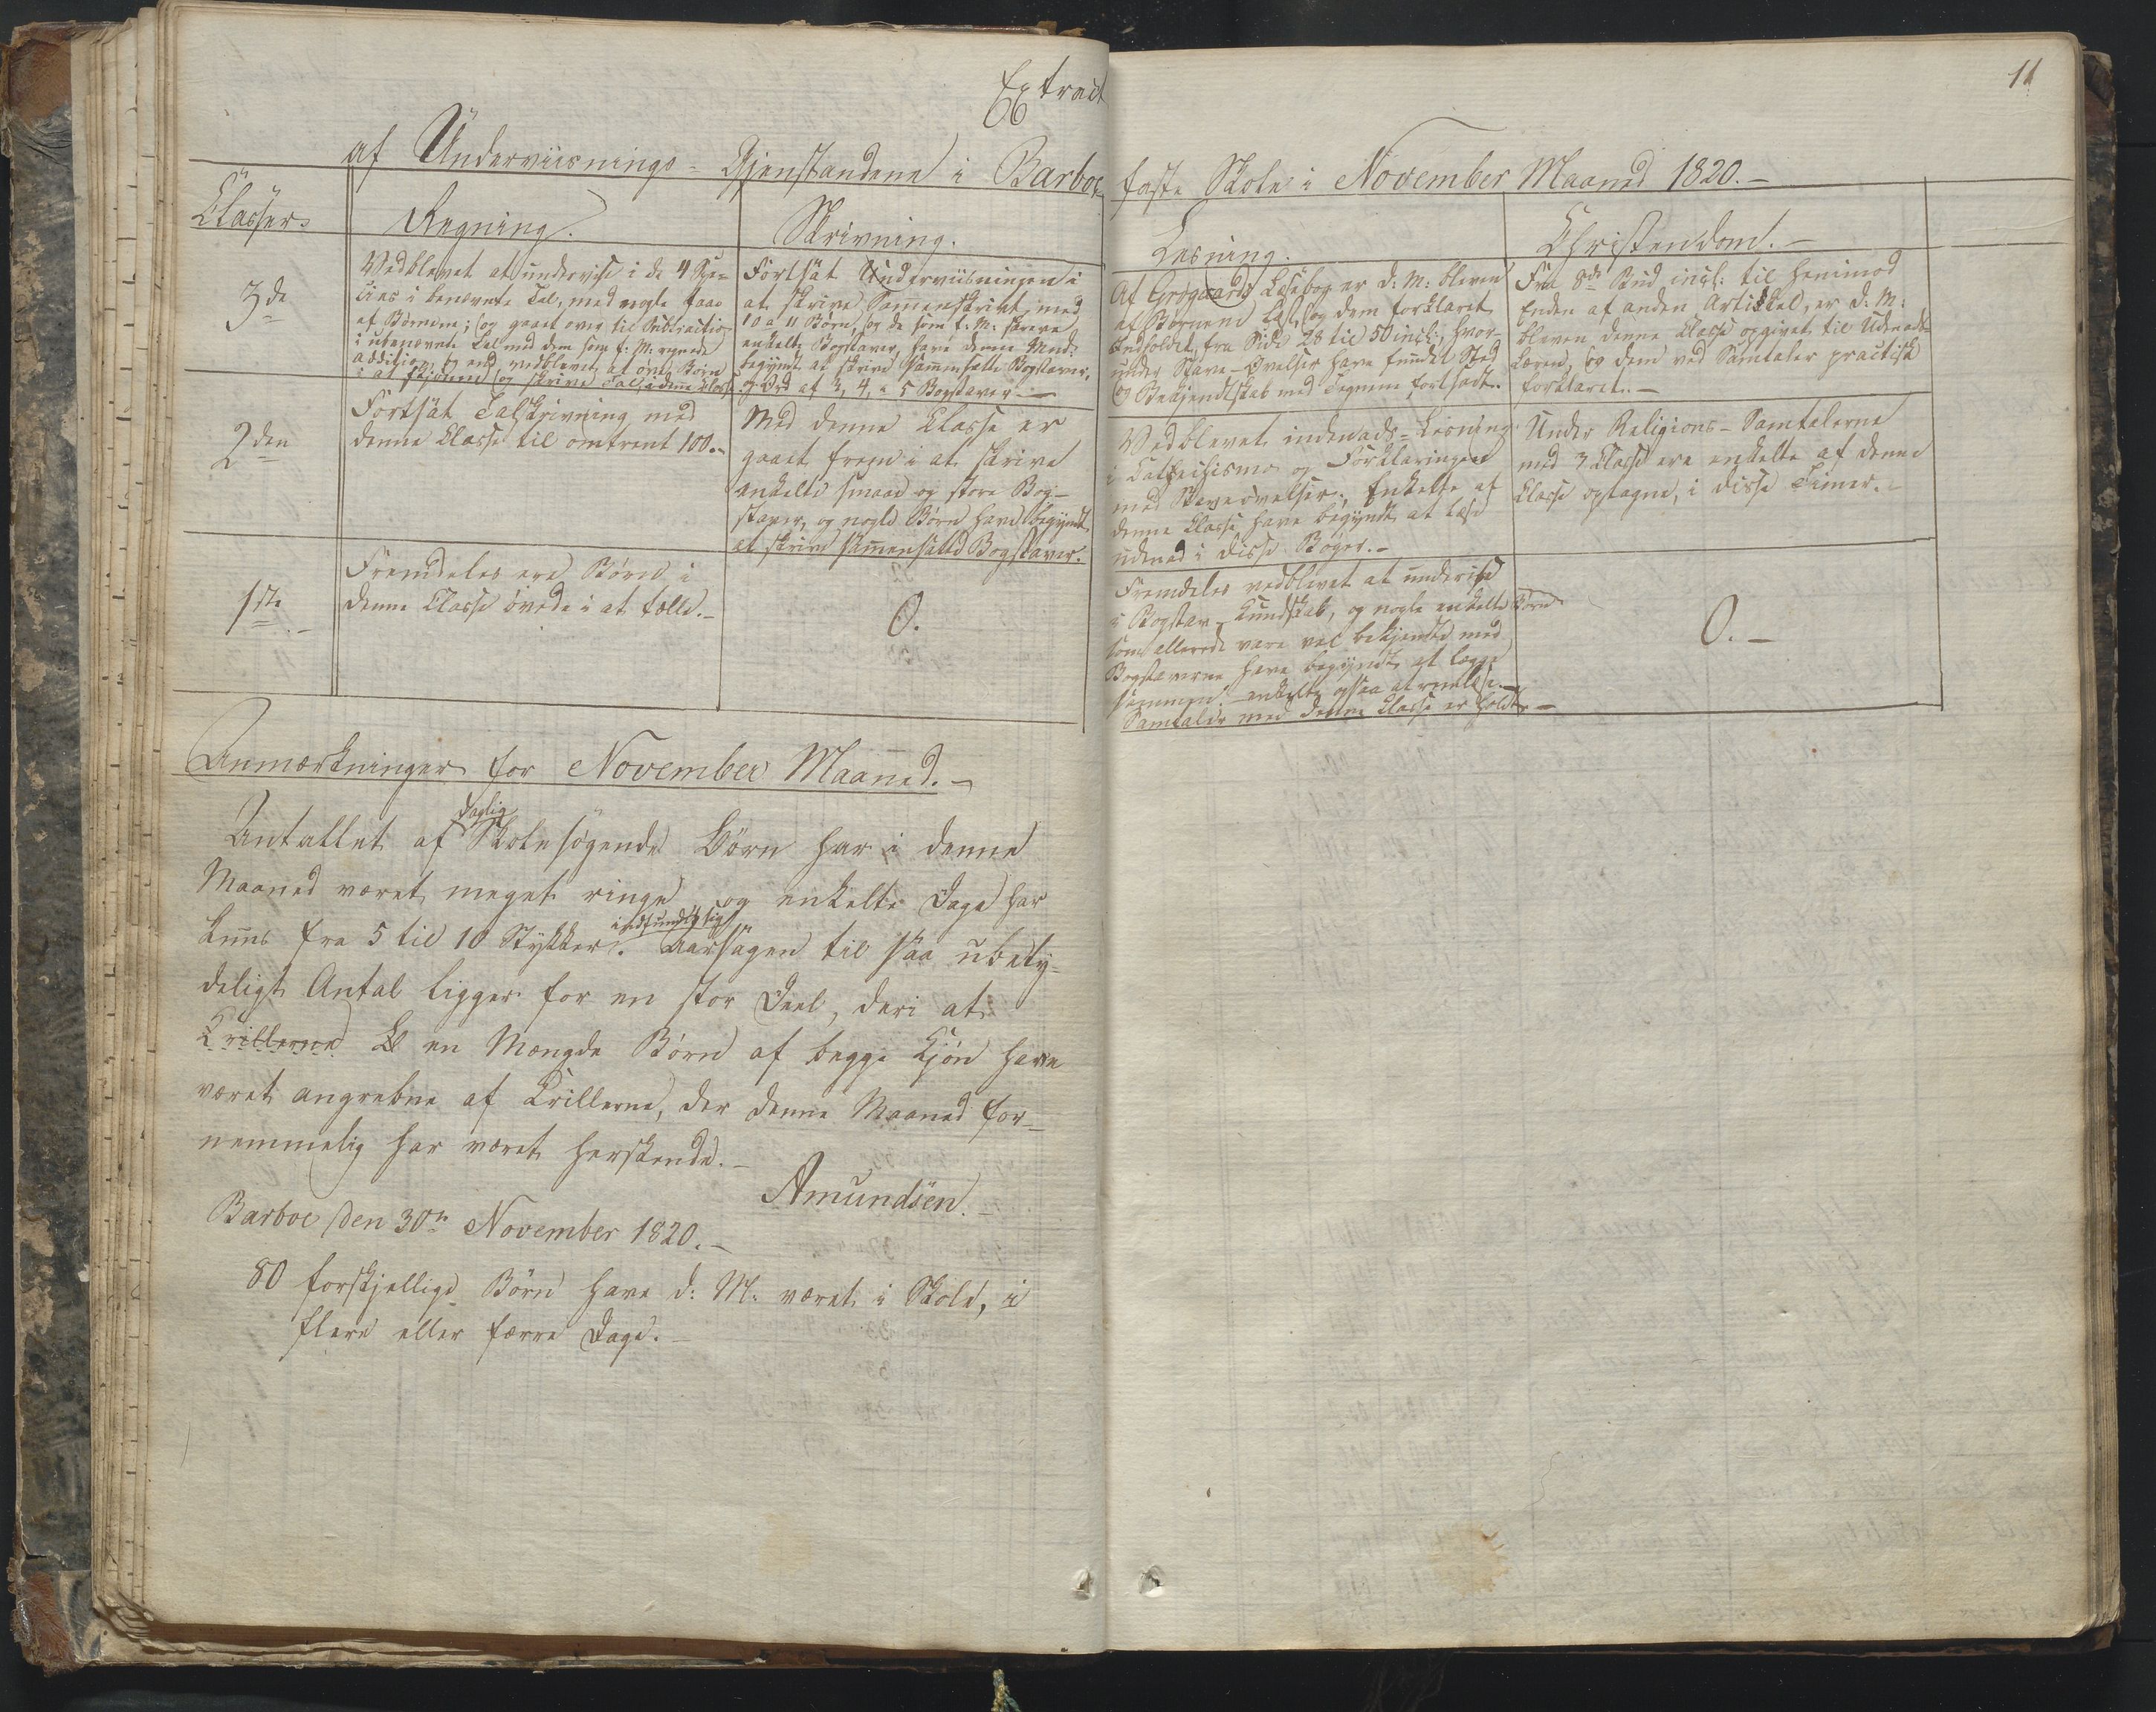 Extract
11
af Underviisnings-Gjenstandene i Barboe faste Skole i November Maaned 1820.-
Classer.
Regning.
Skrivning.
Læsning.
Christendom.-
3de
Vedblevet at undervise i de 4 Spe-
cies i benævnte Tal, med nogle faae
af Børnene; og gaaet over til Subtraction
i ubenævnte Tal med dem som f: M: regnede
Addition, og end vedblevet at øve Børn
i at kjende og skrive Tal i denne Classe.
Fortsat Underviisningen i
at skrive Sammenskrivt med
10 a 11 Børn, og de som f: M: skreve
enkelte Bogstaver, have denne Maad:
begyndt at skrive sammensatte Bogstaver,
og Ord af 3, 4, a 5 Bogstaver.-
Af Grøgaards Læsebog er d: M: bleven
af Børnene læst, og dem forklaret
Indholdet, fra Side 28 til 50 incl:, hvor-
under Stave-Øvelser have fundet Sted
og Bekjendtskab med Tegnene fortsadt.
Fra 8de Bud incl: til henimod
Enden af anden Artikkel, er d: M:
bleven denne Classe opgivet til Udenads-
Læren, og dem ved Samtaler practisk
forklaret.-
2den
Fortsat Talskrivning med
denne Classe til omtrent 100.-
Med denne Classe er
gaaet frem i at skrive
enkelte smaae og store Bog-
staver, og nogle Børn have begyndt
at skrive sammensatte Bogstaver.
Vedblevet indenads-Læsning
i Catechismo og Forklaringen
med Staveøvelser. Enkelte af
denne Classe have begyndt at læse
udenad i disse Bøger.-
Under Religions-Samtalerne
med 3 Classe ere enkelte af denne
Classe optagne, i disse Timer.-
1ste
Fremdeles ere Børn i
denne Classe øvede i at tælle.-
0.
Fremdeles vedblevet at undervise
i Bogstav-Kundskab, og nogle enkelte Børn
som allerede vare vel bekjendte med
Bogstaverne have begyndt at lægge
sammen. enkelte ogsaa at
Samtaler med denne Classe er holdt.-
0.-
Anmærkninger for November Maaned.-
daglig
Antallet af Skolesøgende Børn har i denne
Maaned været meget ringe og enkelte Dage har
indfundet sig
kuns fra 5 til 10 Stykker. Aarsagen til saa ubety-
deligt Antal ligger for en stor Deel, deri at
Krillerne en Mængde Børn af begge Kjøn have
været angrebne af Krillerne, der denne Maaned for-
nemmelig har været herskende.-
Amundsen.-
Barboe den 30te November 1820.-
80 forskjellige Børn have d: M: været i Skole, i
flere eller færre Dage.-